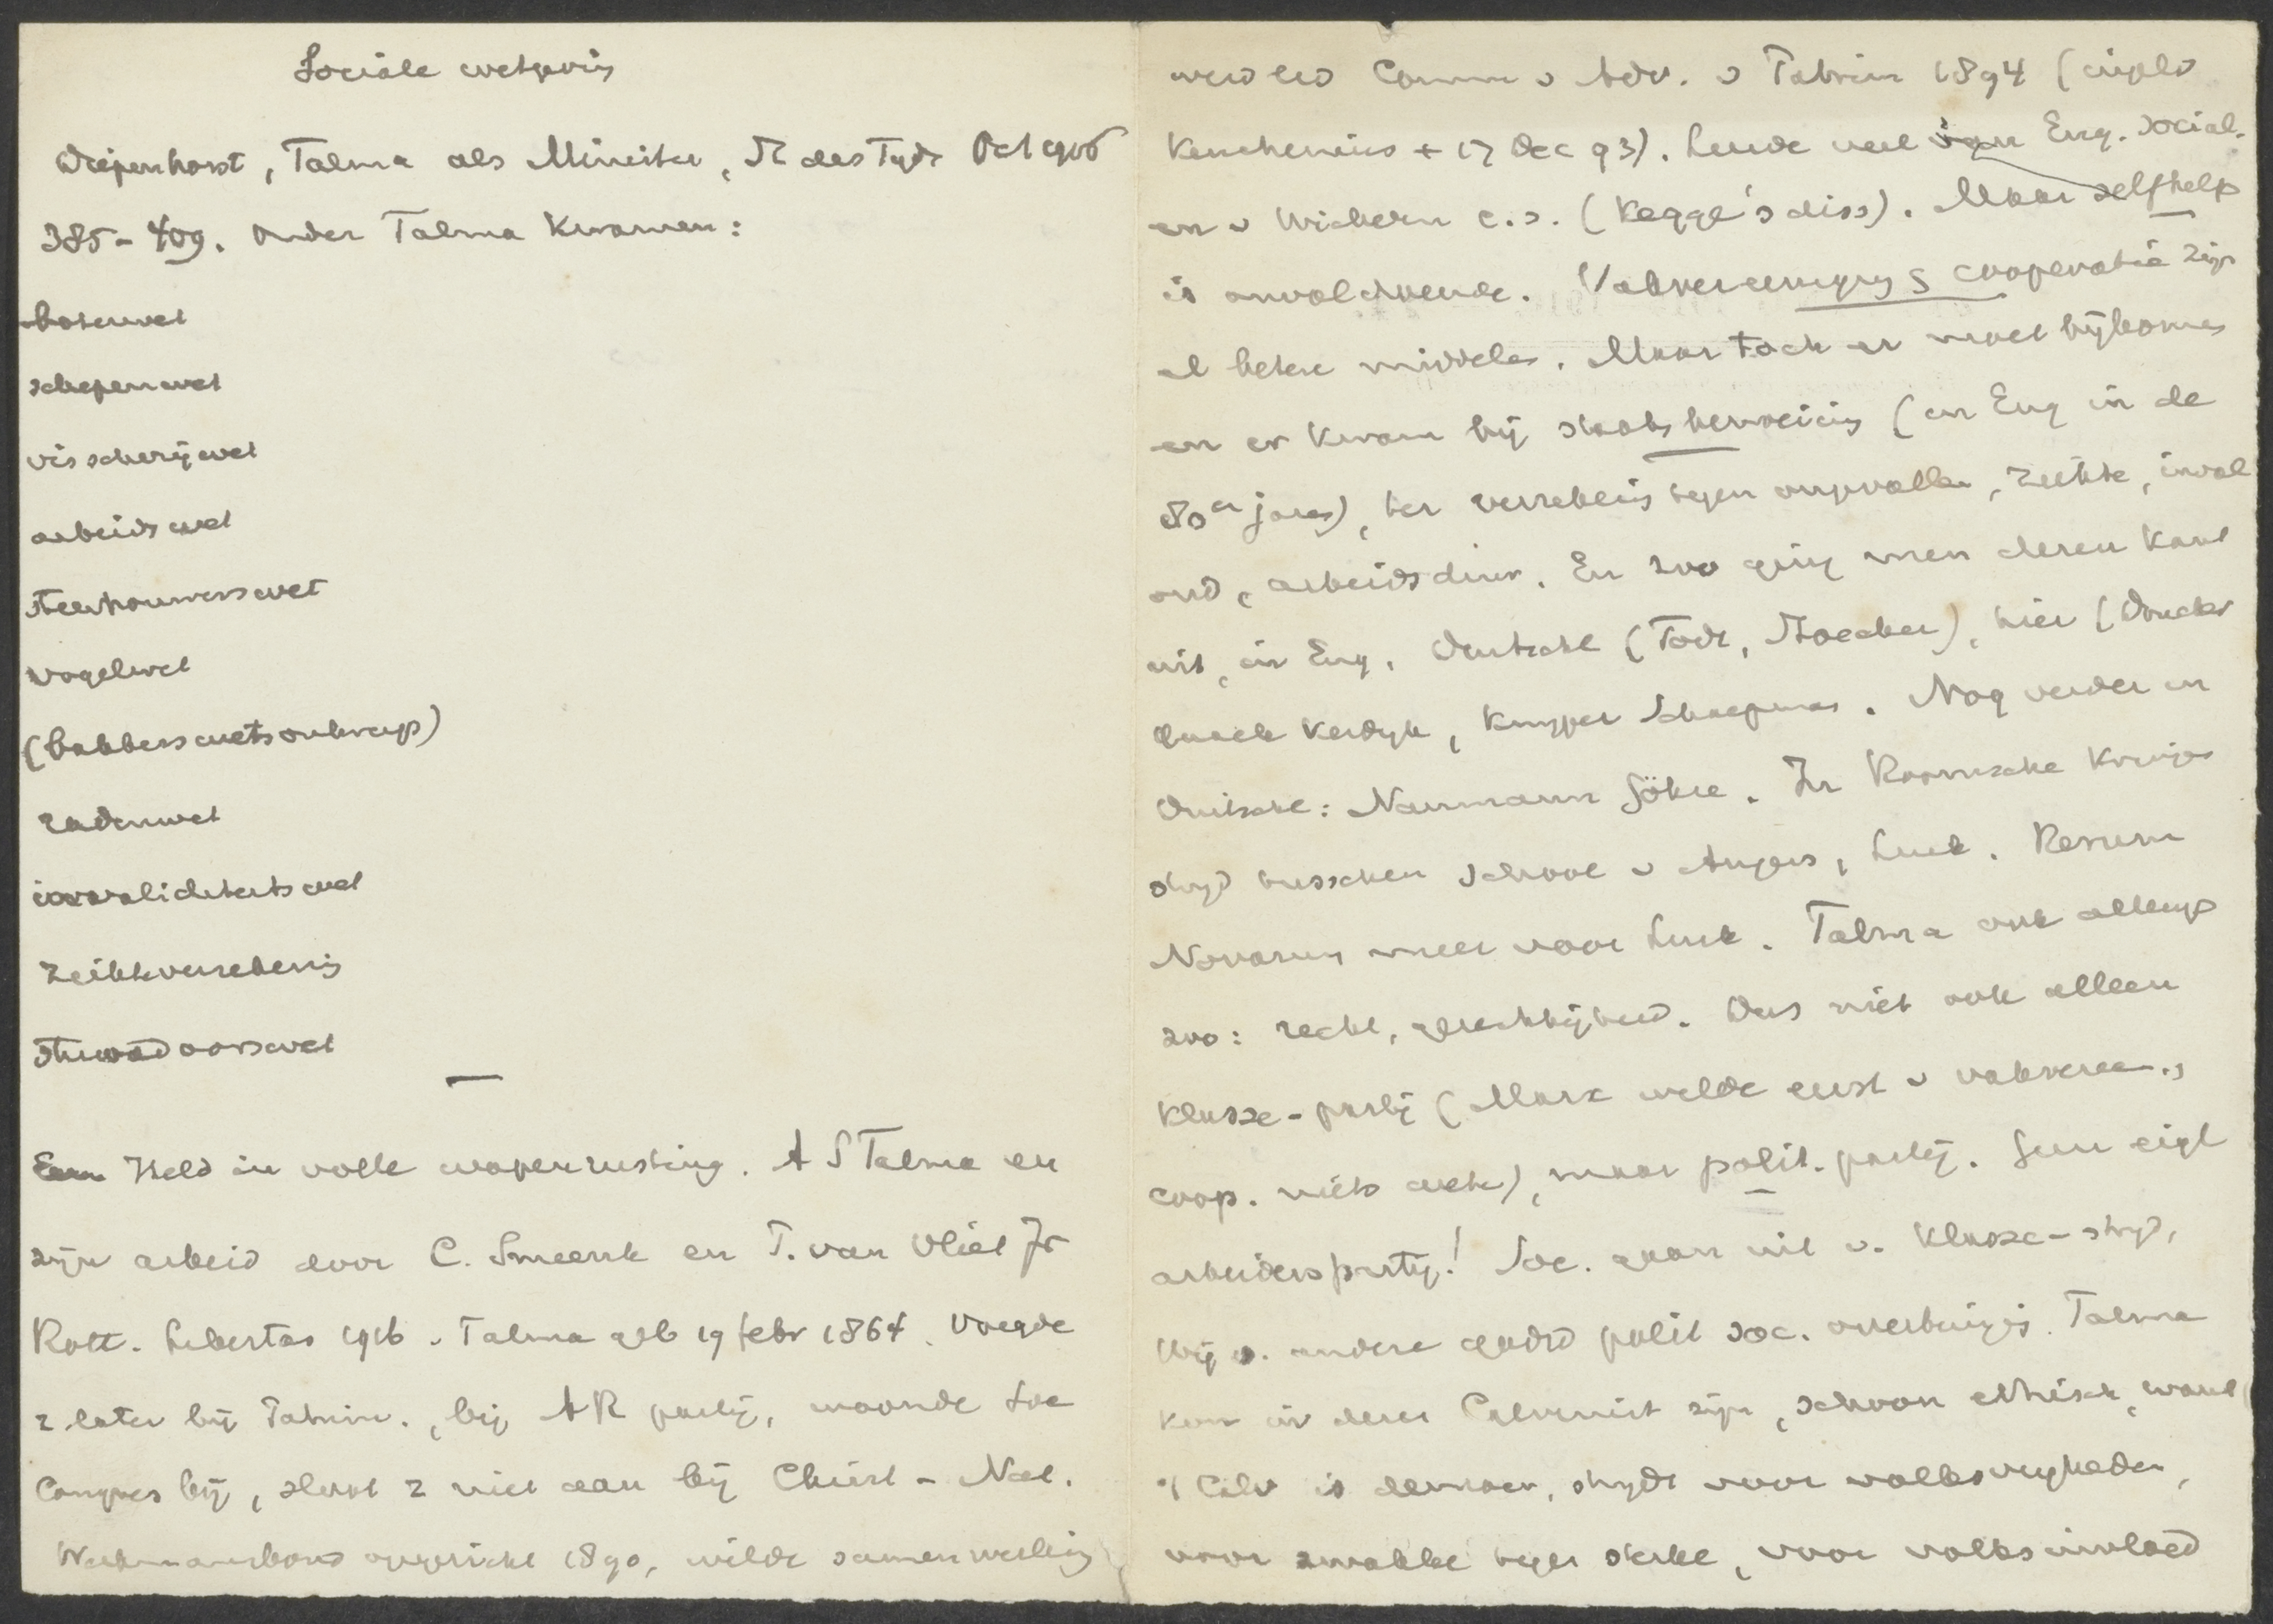 Sociale wetgeving
Diepenhorst, Talma als Minister, St des Tyds Oct 1916
385-409. Onder Talma kwamen:
botenwet
schepenwet
visscherijwet
arbeidswet
steenhouwerswet
vogelwet
(bakkerswetsontwerp)
radenwet
invaliditeitswet
ziekteverzekering
stuwadoorswet
Een Held in volle wapenrusting. A S Talma en
zijn arbeid door C. Smeenk en T. van Vliet Jr
Rott. Libertas 1916. Talma geb 19 febr 1864. Voegde
z later bij Patrim., bij AR partij, woonde Soc
Congres bij, sloot z niet aan bij Christ-Nat.
Werkmansbond opgericht 1890, wilde samenwerking
werd lid Comm v Adv. v Patrim 1894 (in pl v
Keuchenius + 17 Dec 93). Leerde veel van Eng. social.
en v Wichern e.s. (Kegge's diss). Maar selfhelp
is onvoldoende. Vakvereenigng & cooperatie zijn
al betere middelen. Maar toch er moet bijkomen
en er kwam bij staatsbemoeiing (in Eng in de
80er jaren), ter verzekering tegen ongevallen, ziekte, inval
oud, arbeidsduur. En zoo ging men dezen kant
uit, in Eng. Duitschl (Todt, Stoecker), hier (Drucker
Quack Kerdijk, Kuyper Schaepman. Nog verder in
Duitschl: Naumann Göhre. In Roomsche kringen
stryd tusschen school v Angers, Luik. Rerum
Novarum meer voor Luik. Talma ook allengs
zoo: recht, gerechtigheid. Dus niet ook alleen
klasse-partij (Marx wilde eerst v vakvereen.,
coop. niets weten), maar polit. partij. Geen eigl
arbeiderspartij! Soc. gaan uit v. klasse-stryd,
Wij v. andere godsd polit soc. overtuigng. Talma
kon in dezen Calvinist zijn, schoon ethisch, want
't Calv is democr, strydt voor volksvryheden,
voor zwakke tegen sterke, voor volksinvloed